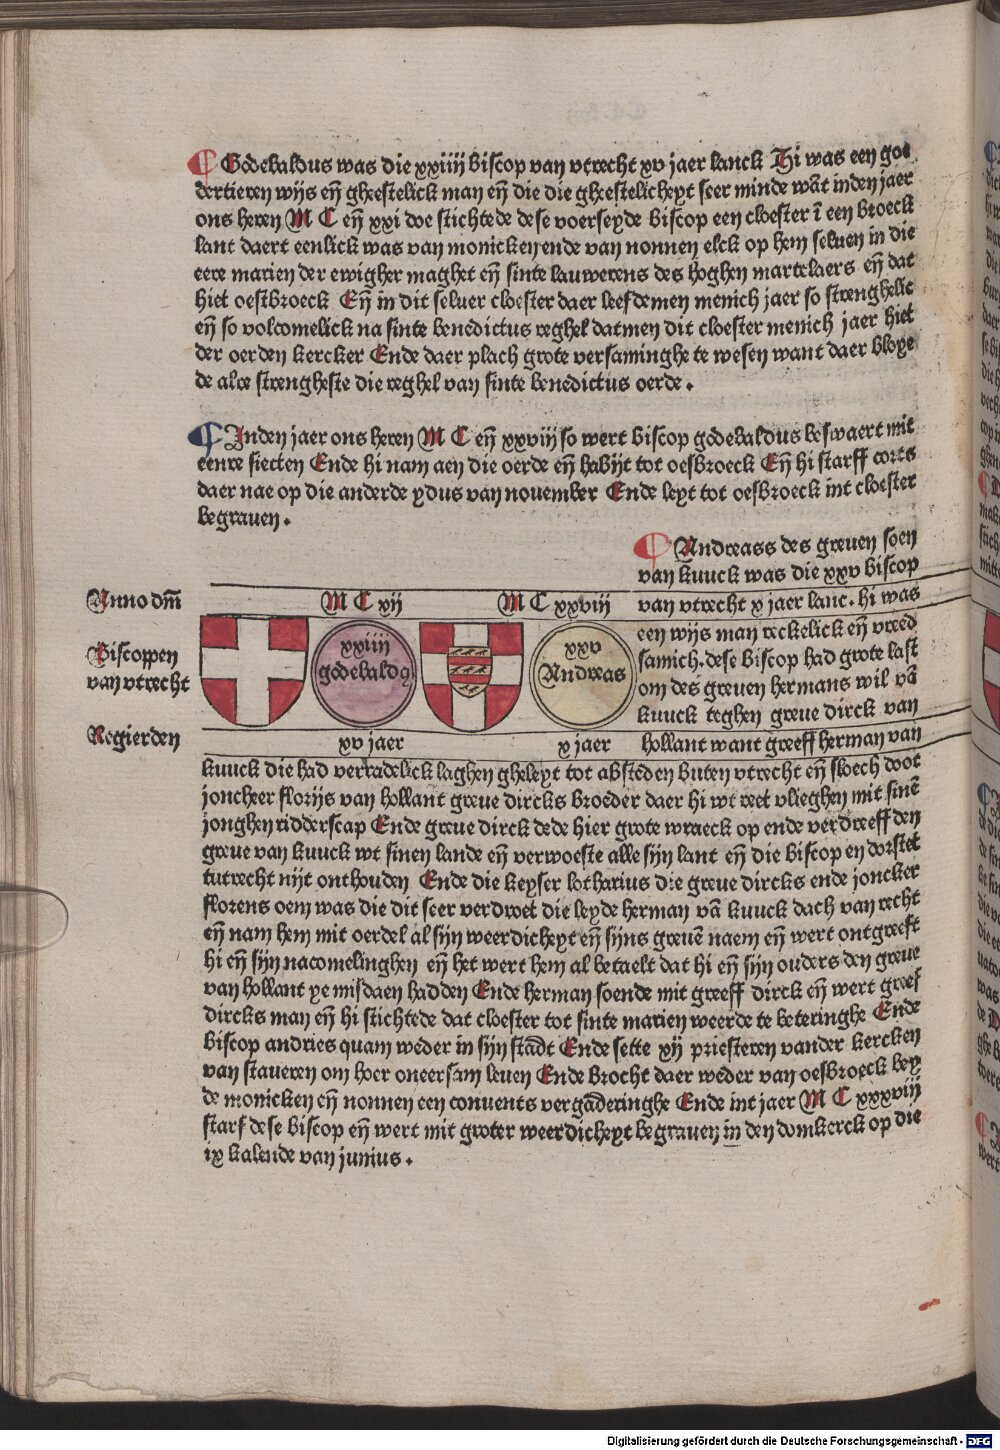 ¶ Godebaldus was die xxiiij biscop van vtrecht xv jaer lanck Hi was een goe
dertieren wijs eñ gheestelick man eñ die die gheestelicheyt seer minde wãt inden jaer
ons heren M C eñ xxi doe stichtede dese voerseyde biscop een cloester ĩ een broeck
lant daert eenlick was van monicken ende van nonnen elck op hem seluen in die
eere marien der ewigher maghet eñ sinte lauwerens des hoghen martelaers eñ dat
hiet oestbroeck Eñ in dit seluer cloester daer leefdemen menich jaer so strenghelic
eñ so volcomelick na sinte benedictus reghel datmen dit cloester menich jaer hiet
der oerden kercker Ende daer plach grote versaminghe te wesen want daer bloye
de alre strengheste die reghel van sinte benedictus oerde.
¶ Inden jaer ons heren M C eñ xxviij so wert biscop godebaldus beswaert mit
eenre siecten Ende hi nam aen die oerde eñ habijt tot oesbroeck Eñ hi starff corts
daer nae op die anderde ydus van nouember Ende leyt tot oesbroeck int cloester
begrauen.
¶ Andreass des greuen soen
van kuuck was die xxv biscop
Anno dm̃
M C xij
M C xxviij
van vtrecht x jaer lanc. hi was
een wijs man reckelick eñ vreed
samich. dese biscop had grote last
om des greuen hermans wil vã
kuuck teghen greue dirck van
Biscoppen
van vtrecht
xxiiij
godebaldꝰ
xxv
Andreas
Regierden
xv jaer
x jaer
hollant want greeff herman van
kuuck die had verradelick laghen gheleyt tot absteden buten vtrecht eñ sloech doot
joncheer florijs van hollant greue dircks broeder daer hi wt reet vlieghen mit sinẽ
jonghen ridderscap Ende greue dirck dede hier grote wraeck op ende verdreeff den
greue van kuuck wt sinen lande eñ verwoeste alle sijn lant eñ die biscop en dorstet
tutrecht nijt onthouden Ende die keyser lotharius die greue dircks ende joncker
florens oem was die dit seer verdroet die leyde herman vã kuuck dach van recht
eñ nam hem mit oerdel al sijn weerdicheyt eñ sijns greuẽ naem eñ wert ontgreeft
hi eñ sijn nacomelinghen eñ het wert hem al betaelt dat hi eñ sijn ouders den greue
van hollant ye misdaen hadden Ende herman soende mit greeff dirck eñ wert greef
dircks man eñ hi stichtede dat cloester tot sinte marien weerde te beteringhe Ende
biscop andries quam weder in sijn stadt Ende sette xij priesteren vander kercken
van staueren om hoer oneersam leuen Ende brocht daer weder van oesbroeck bey
de monicken eñ nonnen een conuents vergaderinghe Ende int jaer M C xxxviij
starf dese biscop eñ wert mit groter weerdicheyt begrauen in den domkerck op die
ix kalende van junius.
Digitalisierung gefördert durch die Deutsche Forschungsgemeinschaft - DFG